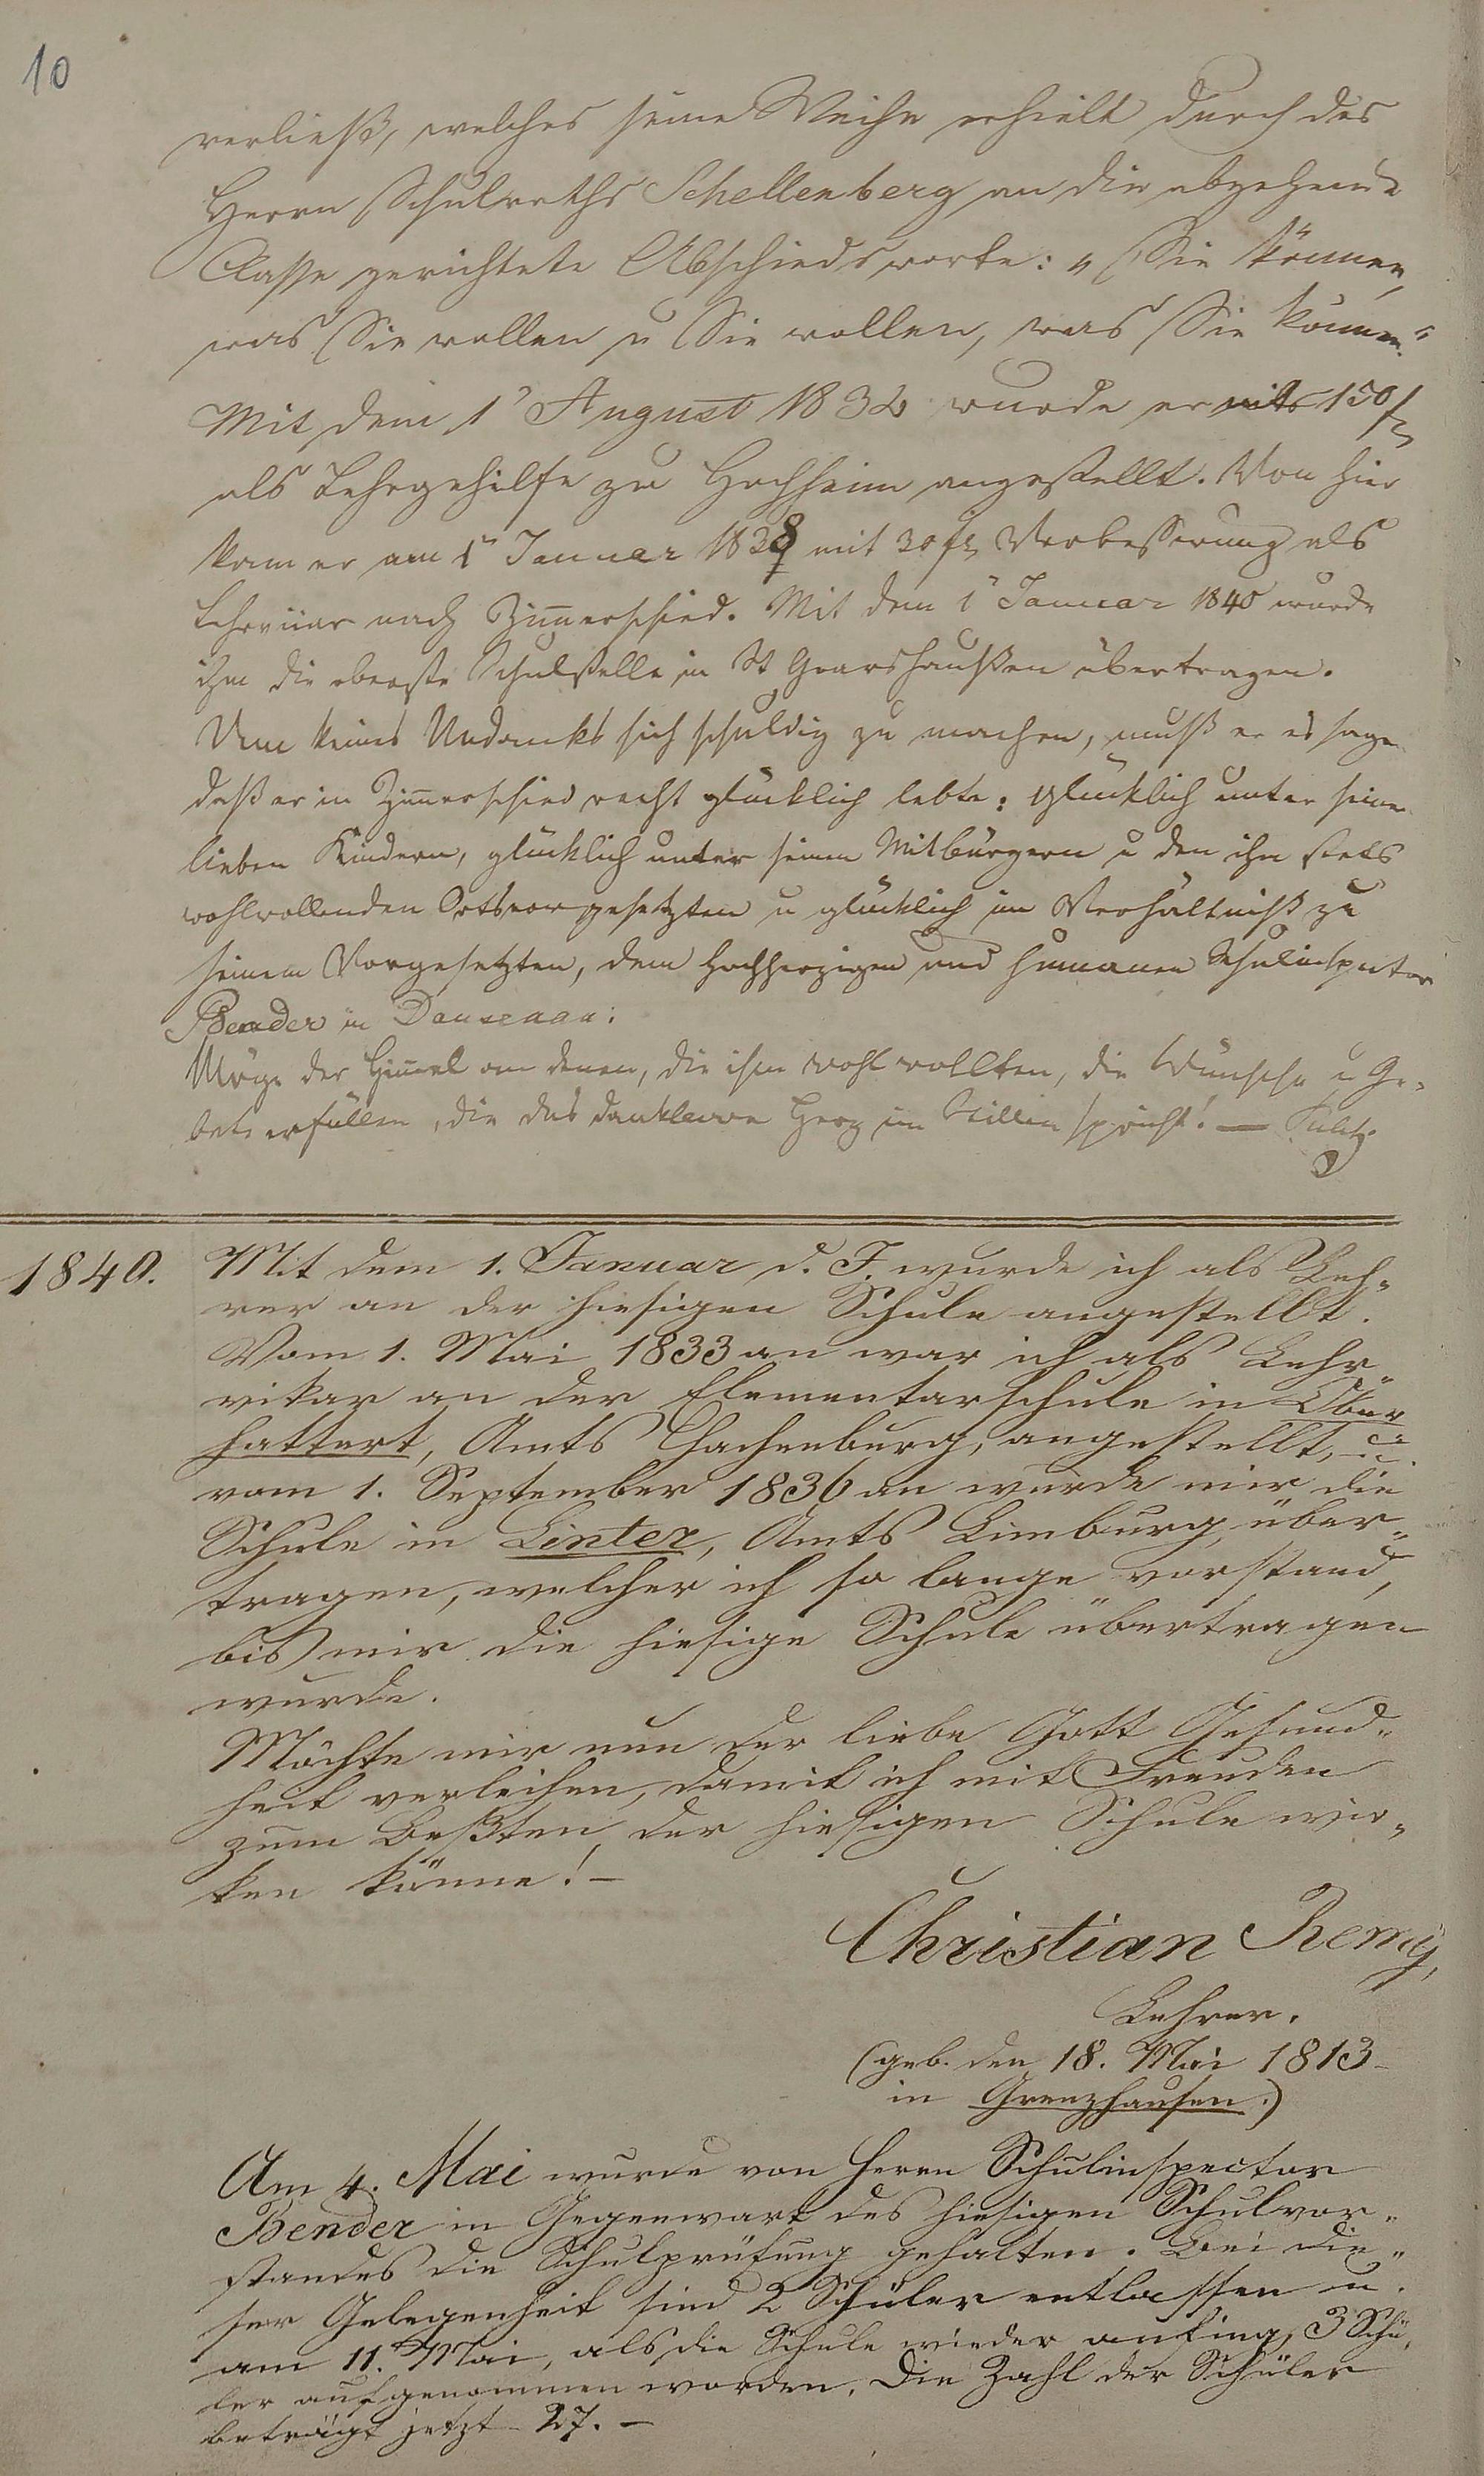 10
verließ, welches seine Weihe erhielt durch des
Herrn Schulraths Schellenberg an die abgehende
Classe gerichtete Abschiedsworte: „Sie können,
was Sie wollen u Sie wollen, was Sie können.“
Mit dem 1' August 1832 wurde er mit 150 fl
als Lehrgehilfe zu Hochheim angestellt. Von hier
kam er am 1' Januar 1838 mit 30 fl Verbesserung als
Lehrvicar nach Zim̄erschied. Mit dem 1' Januar 1840 wurde
ihm die oberste Schulstelle in St Goarshaußen übertragen.
Um keines Undanks sich schuldig zu machen, muß er es sagen
daß er in Zim̄erschied recht glücklich lebte: glücklich unter seinen
lieben Kindern, glücklich unter seinen Mitbürgern u den ihm stets
wohlwollenden Ortsvorgesetzten u glücklich im Verhältniß zu
seinem Vorgesetzten, dem hochherzigen und humanen Schulinspector
Bender in Dausenau:
Möge der Him̄el an denen, die ihm wohl wollten, die Wünsche u Ge-
bete erfüllen, die das dankbare Herz im Stillen spricht! —
1840.
Mit dem 1. Januar d. J. wurde ich als Leh-
rer an der hiesigen Schule angestellt.
Vom 1. Mai 1833 an war ich als Lehr-
vikar an der Elementarschule in Ober-
hattert, Amts Hachenburg, angestellt, u.
vom 1. September 1836 an wurde mir die
Schule in Linter, Amts Limburg, über-
tragen, welcher ich so lange vorstand,
bis mir die hiesige Schule übertragen
wurde.
Möchte mir nun der liebe Gott Gesund-
heit verleihen, damit ich mit Freuden
zum Beßten der hiesigen Schule wir-
ken könne! –
Christian Remy,
Lehrer.
(geb. den 18. Mai 1813
in Grenzhausen.)
Am 4. Mai wurde von Herrn Schulinspector
Bender in Gegenwart des hiesigen Schulvor-
standes die Schulprüfung gehalten. Bei die-
ser Gelegenheit sind 2 Schüler entlassen u.
am 11. Mai, als die Schule wieder anfing, 3 Schü-
ler aufgenommen worden. Die Zahl der Schüler
beträgt jetzt 27. –